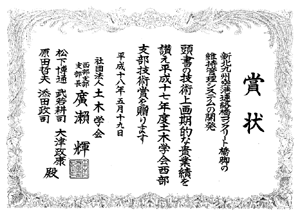 賞状
新北九州空港連絡橋コンクリート橋脚の
維持管理システムの開発
頭書の技術上画期的な貴業績を
讃え平成十七年度土木学会西部
支部技術賞を贈ります
平成十八年五月十九日
社団法人土木学会
西部支部
支部長 廣瀬輝
松下博通 武若耕司 大津政康
原田哲夫 添田政司 殿